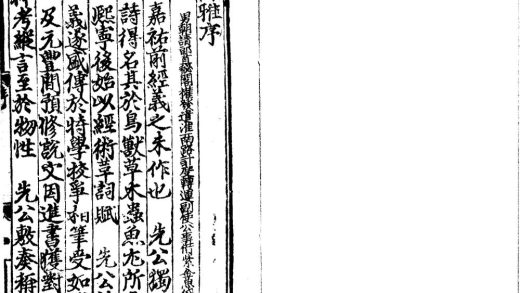 雅序
男朝請郎直祕閣權發遣淮南路計度轉運副使公事借紫金魚
嘉祐前經義之未作也 先公獨
詩得名其於鳥獸草木蟲魚尤所
熙寧後始以經術革詞賦 先公
義遂盛傳於時學校爭相筆受如
及元豐間預修説文因進書獲對
考縱言至於物性 先公敷奏稱